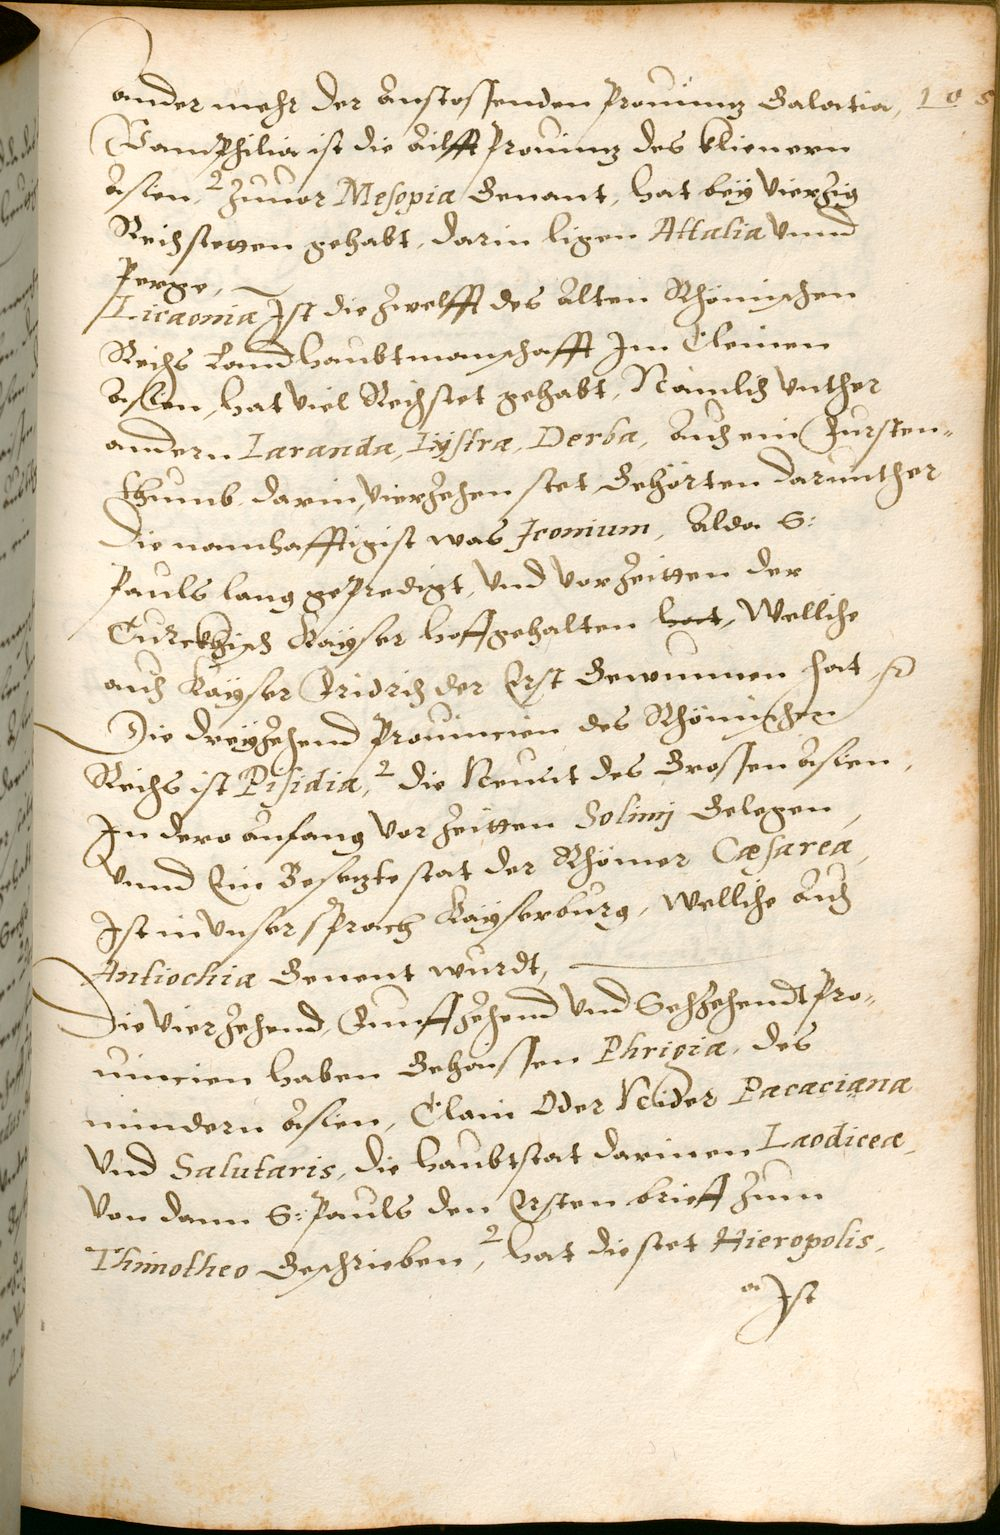 ander mehr der anstossenden Prouintz Galatia, 105
Pamphilia ist die ailfft Prouintz des klienern
asien, 2 zuuor Mesopia Genant, hat beÿ vierzig
Reichstetten gehabt, darin ligen Attalia vnnd
Perge,
Licaonia Ist die zwelfft des alten Rhömischen
Reichs Landhaubtmanschafft Jm Cleinen
asien, hat viel Reichstet gehabt, Nämlich vnther
andern Laranda, Lÿstra, Derba, auch ein Fursten-
thumb darin, vierzehen stet Gehörten darunther
die namhafftigist was Jconium, alda S:
Pauls lang gepredigt, vnd vorzeitten der
Turckhisch Kaÿser hoffgehalten hat, Welliche
auch Kaÿser Fridrich der Erst Gewunnen hat
Die dreÿzehend Prouincien des Rhömischen
Reichs ist Pisidia, 2 die Neunt des Grossen asien,
Jn dero anfang vor zeitten Solimj Gelegen,
vnnd Ein Besetzte stat der Rhömer Cæsarea,
Jst in vnser sprach Kaÿserburg, Welliche auch
Antiochia Genent wurdt,
Die vierzehend, Funffzehend vnd Sechzehendt Pro-
uincien haben Gehaissen Phrigia, des
mindern asien, Clain Oder Nider Pacaciana
vnd Salutaris, die haubtstat darinen Laodicea,
von dann S: Pauls den Ersten brieff zum
Thimotheo Geschrieben, 2 hat die stet Hieropolis,
a Jst